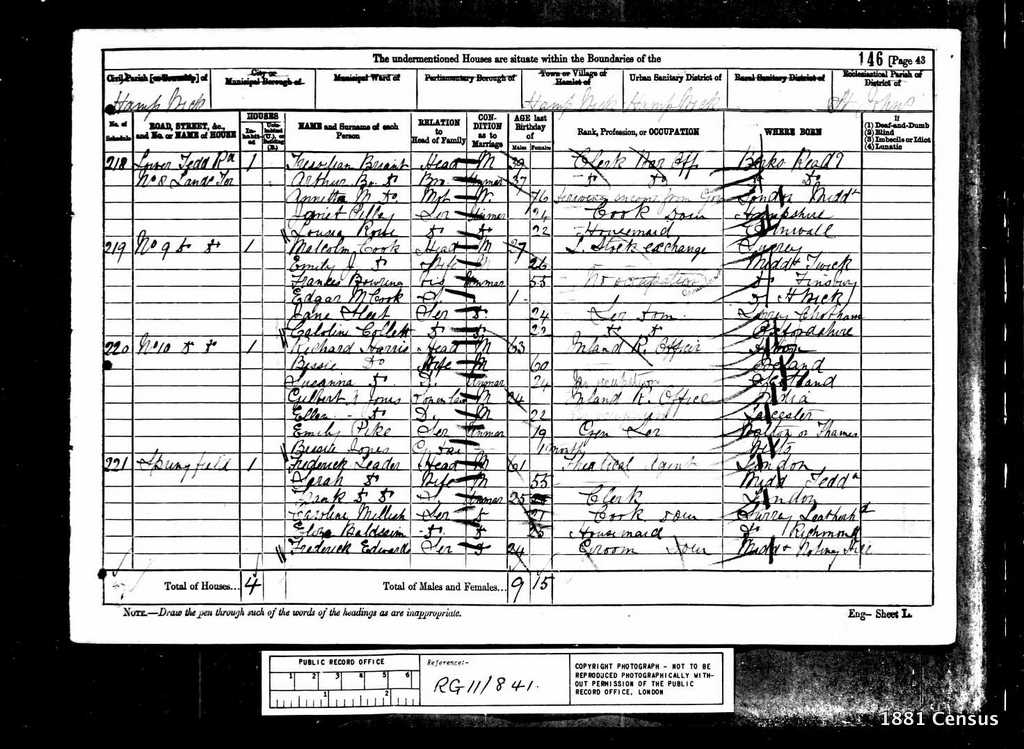 The undermentioned Houses are situate within the Boundaries of the
146 [Page 43
Civil Parish [or Township] of
City or Municipal Borough of
Municipal Ward of
Parliamentary Borough of
Town or Village of Hamlet of
Urban Sanitary District of
Rural Sanitary District of
Ecclesiastical Parish of District of
Hamp Wick Hamp Wick Hamp Wick St Johns
No. of Schedule
ROAD, STREET, &c., and No. or NAME of HOUSE
HOUSES
Inhabited
Uninhabited (U.), or Building (B.)
NAME and Surname of each Person
RELATION to Head of Family
CONDITION as to Marriage
AGE last Birthday of
Males
Females
Rank, Profession, or OCCUPATION
WHERE BORN
If
(1) Deaf-and-Dumb
(2) Blind
(3) Imbecile or Idiot
(4) Lunatic
218 Lower Tedd Rd 1 Bryant Head M 39 Clerk War Off Berks Readg
No 8 Arthur Do Bro Unmar 37 Do Do Do Do
Annetta M Do Mot W 76 London Middx
Ser Unmar 24 Cook Dom Hampshire
Louisa Rowe Do Do 22 Housemaid Cornwall
219 No 9 Do Do 1 Malcolm Cook Head M 27 Stock exchange Surrey
Emily J Do Wife M 26 Middx Twick
Frances Bowring Vis Unmar 55 No occupation Do Finsbury
Edgar M Cook S 1 Do H Wick
Jane Ser Do 24 Ser Dom Surrey
Caroline Collett Do Do 22 Do Do Oxfordshire
220 No 10 Do Do 1 Richard Harris Head M 63 Inland R. Officer
Bessie Do Wife M 60 Ireland
Susanna Do D Unmar 24 No occupation Scotland
Jones Son in law M 24 Inland R. Office India
Ellen Do D M 22 Leicester
Emily Pike Ser Unmar 19 Gen Ser Walton on Thames
Bessie Jones
221 Springfield 1 Frederick Leader Head M 61 London
Sarah Do Wife M 55 Midd Tedd
Frank Do Do S Unmar 25 Clerk London
Caroline Ser Do 27 Cook Dom Surrey Leatherhd
Eliza Baldwin Do Do 25 Housemaid Do Richmond
Frederick Edwards Ser Do 24 Groom Dom Middx
Total of Houses... 4
Total of Males and Females... 9 15
NOTE.—Draw the pen through such of the words of the headings as are inappropriate.
Eng— Sheet L.
PUBLIC RECORD OFFICE
1 2 3 4 5 6
1 2
Reference:-
RG 11/841.
COPYRIGHT PHOTOGRAPH - NOT TO BE
REPRODUCED PHOTOGRAPHICALLY WITH-
OUT PERMISSION OF THE PUBLIC
RECORD OFFICE, LONDON
1881 Census